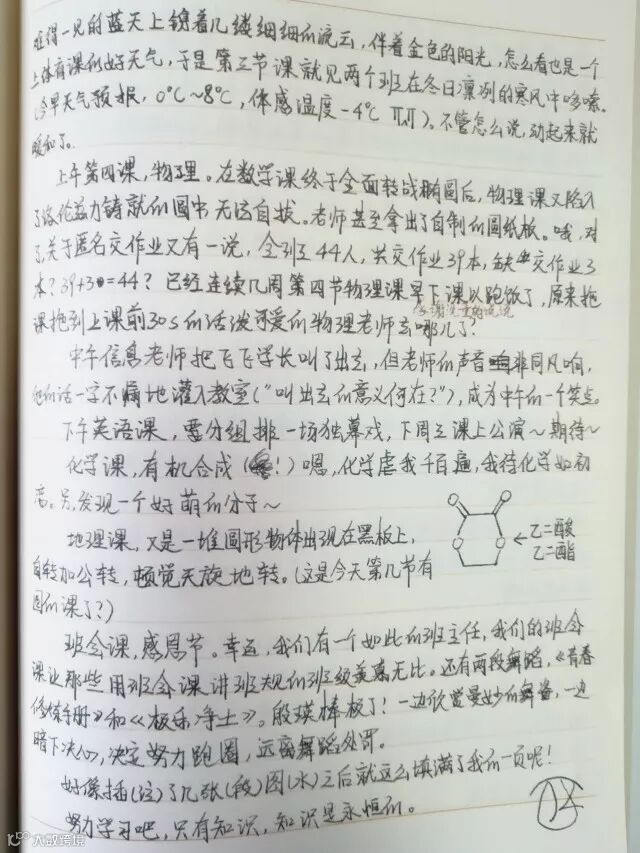 难得一见的蓝天上镶着几缕细细的流云，伴着金色的阳光，怎么看也是一个
上体育课的好天气，于是第三节课就见两个班在冬日凛冽的寒风中哆嗦。
(今早天气预报，0℃～8℃，体感温度-4℃ ㄒㄒ)。不管怎么说，动起来就
暖和了。
上午第四课，物理。在数学课终于全面转战椭圆后，物理课又陷入
了洛伦兹力铸就的圆中无法自拔。老师甚至拿出了自制的圆纸板。哦，对
了，关于匿名交作业又有一说，全班44人，共交作业39本，缺交作业3
本？39+3=44？已经连续几周第四节物理课早下课以跑饭了，原来拖
课拖到上课前30s的活泼可爱的物理老师去哪儿了？
中午信息老师把飞飞学长叫了出去，但老师的声音非同凡响，
他的话一字不漏地灌入教室("叫出去的意义何在？")，成为中午的一个笑点。
下午英语课，要分组排一场独幕戏，下周三课上公演～期待～
化学课，有机合成(！)嗯，化学虐我千百遍，我待化学如初
恋。另，发现一个好萌的分子～
O O
O O
←乙二酸
乙二酯
地理课，又是一堆圆形物体出现在黑板上，
自转加公转，顿觉天旋地转。(这是今天第几节有
圆的课了？)
班会课，感恩节。幸运，我们有一个如此的班主任，我们的班会
课让那些用班会课讲班规的班级羡慕无比。还有两段舞蹈，《青春
修炼手册》和《极乐净土》。殷瑛棒极了！一边欣赏曼妙的舞姿，一边
暗下决心，决定努力跑圈，远离舞蹈处罚。
好像插(注)了几张(段)图(水)之后就这么填满了我的一页呢！
努力学习吧，只有知识，知识是永恒的。
大数跨境